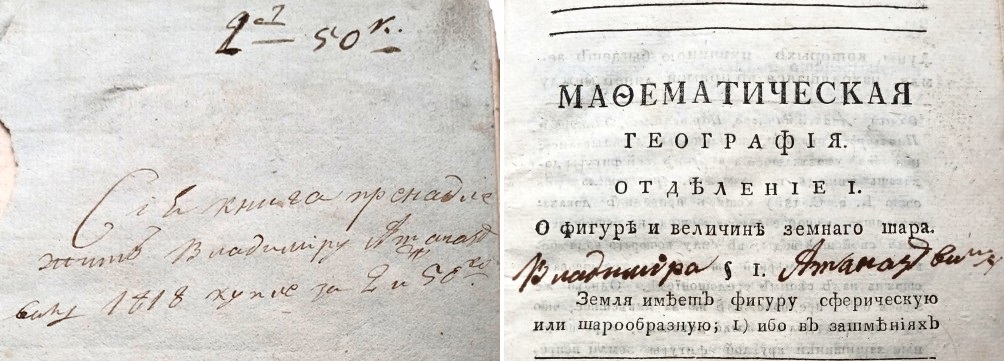 2 50 к.
Сiя книга пренадле
житъ Владимiру Атаназ
вичу 1818 куплѣ за 2 и 50
МАѲЕМАТИЧЕСКАЯ
ГЕОГРАФIЯ.
ОТДѢЛЕНIЕ I.
О фигурѣ и величинѣ земнаго шара.
Владимѣра § I. Атаназевича
Земля имѣетъ фигуру сферическую
или шарообразную; 1) ибо въ затмѣнiяхъ